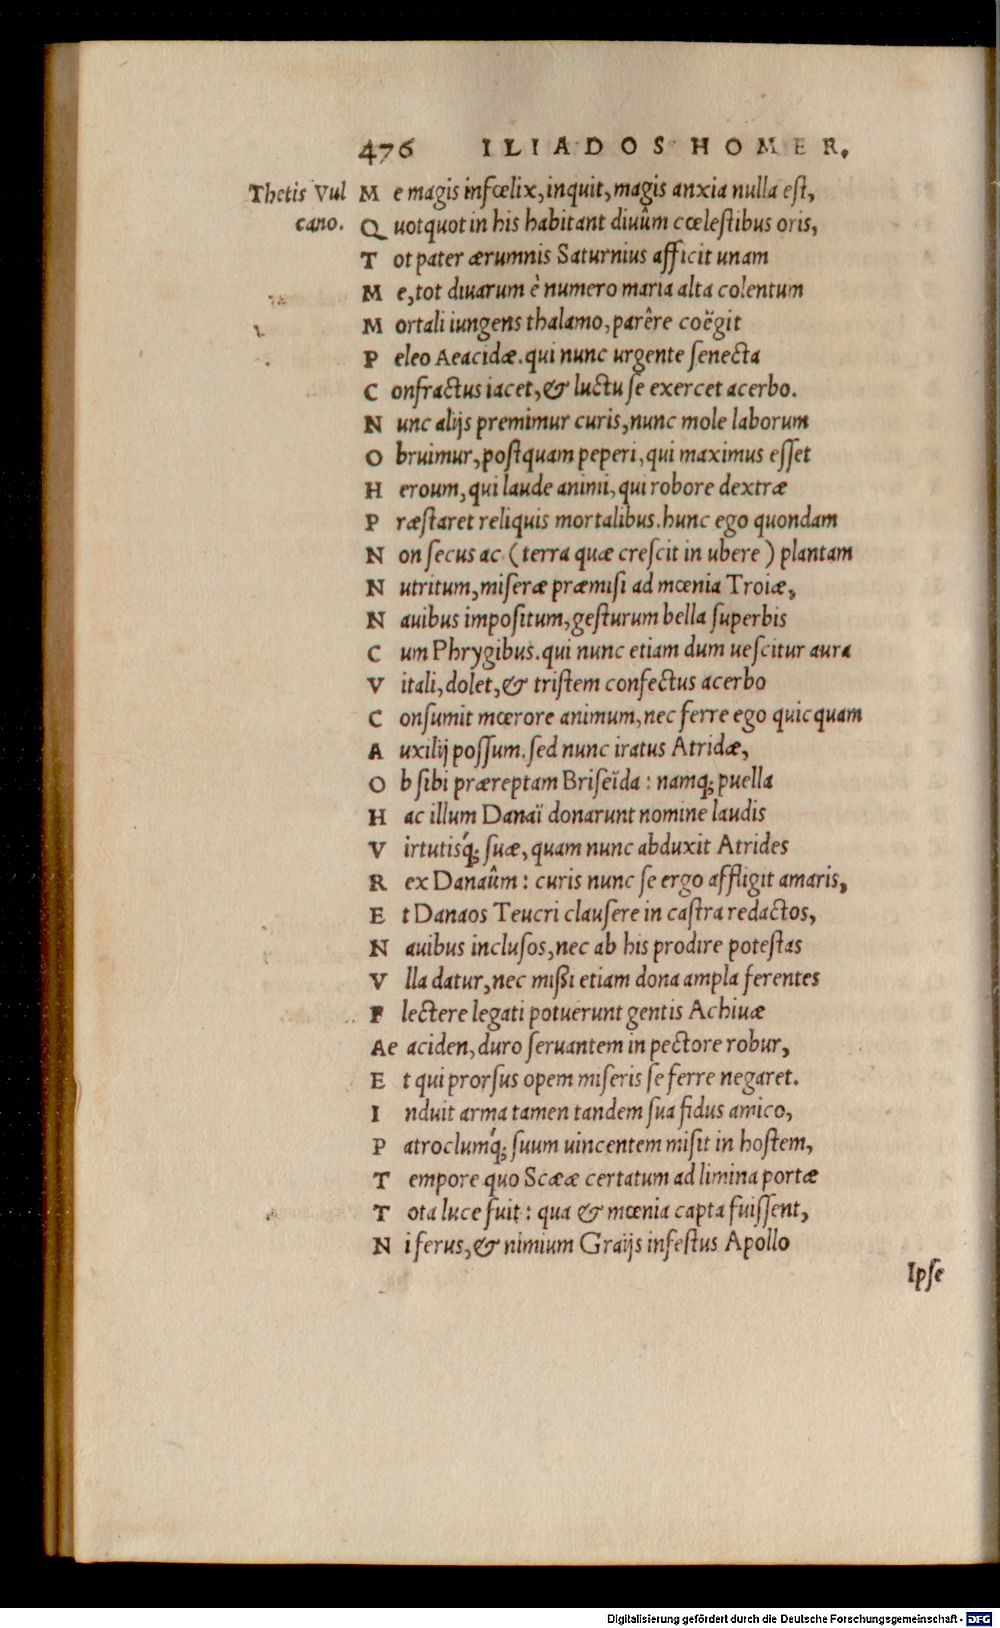 476 ILIADOS HOMER.
Thetis Vul
cano.
Me magis infœlix, inquit, magis anxia nulla est,
Quotquot in his habitant divûm cœlestibus oris,
Tot pater ærumnis Saturnius afficit unam
Me, tot divarum è numero maria alta colentum
Mortali iungens thalamo, parêre coëgit
Peleo Aeacidæ. qui nunc urgente senecta
Confractus iacet, & luctu se exercet acerbo.
Nunc alijs premimur curis, nunc mole laborum
Obruimur, postquam peperi, qui maximus esset
Heroum, qui laude animi, qui robore dextræ
Præstaret reliquis mortalibus. hunc ego quondam
Non secus ac (terra quæ crescit in ubere) plantam
Nutritum, miseræ præmisi ad mœnia Troiæ,
Navibus impositum, gesturum bella superbis
Cum Phrygibus. qui nunc etiam dum vescitur aura
Vitali, dolet, & tristem confectus acerbo
Consumit mœrore animum, nec ferre ego quicquam
Auxilij possum. sed nunc iratus Atridæ,
Ob sibi præreptam Briseïda: namq; puella
Hac illum Danaï donarunt nomine laudis
Virtutisq́; suæ, quam nunc abduxit Atrides
Rex Danaûm: curis nunc se ergo affligit amaris,
Et Danaos Teucri clausere in castra redactos,
Navibus inclusos, nec ab his prodire potestas
Vlla datur, nec mißi etiam dona ampla ferentes
Flectere legati potuerunt gentis Achivæ
Aeaciden, duro servantem in pectore robur,
Et qui prorsus opem miseris se ferre negaret.
Induit arma tamen tandem sua fidus amico,
Patroclumq́; suum vincentem misit in hostem,
Tempore quo Scææ certatum ad limina portæ
Tota luce fuit: qua & mœnia capta fuissent,
Ni ferus, & nimium Graijs infestus Apollo
Ipse
Digitalisierung gefördert durch die Deutsche Forschungsgemeinschaft - DFG